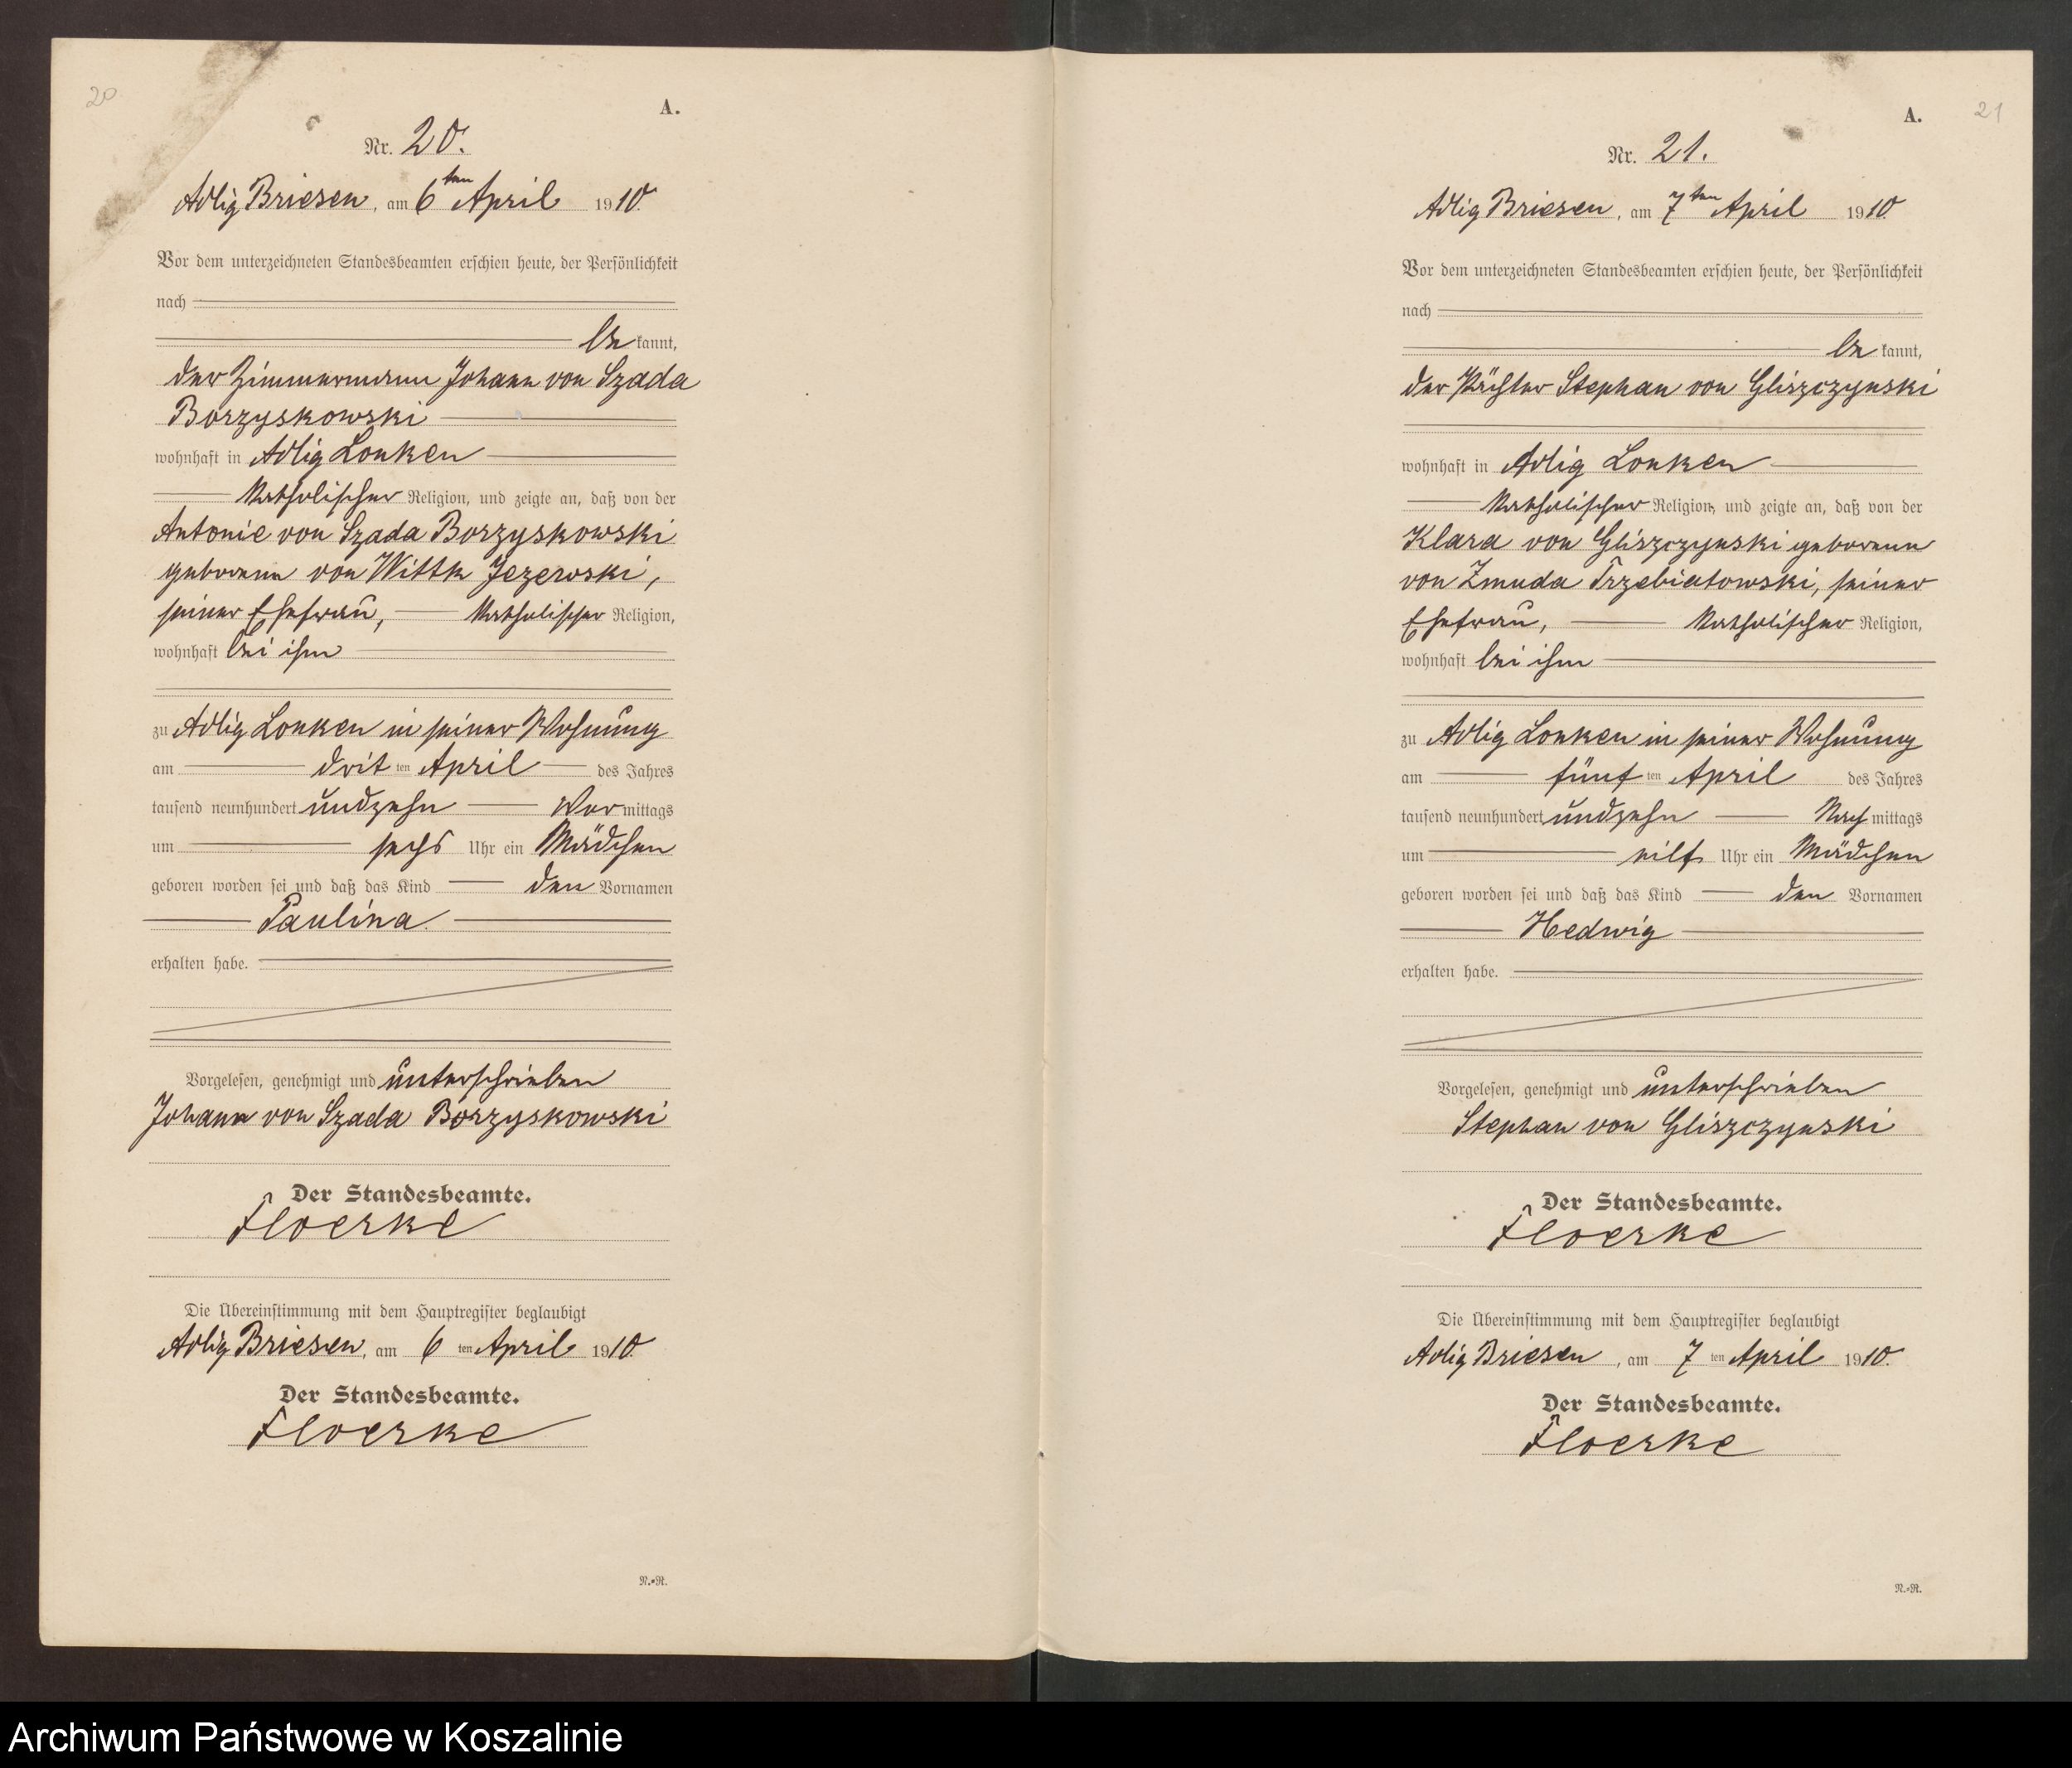 20
A.
Nr. 20.
Adlig Briesen, am 6ten April 1910.
Vor dem unterzeichneten Standesbeamten erschien heute, der Persönlichkeit
nach
be kannt,
der Zimmermann Johann von Szada
Borzyskowski
wohnhaft in Adlig Lonken
katholischer Religion, und zeigte an, daß von der
Antonie von Szada Borzyskowski
geborene von Wittk Jezewski,
seiner Ehefrau, katholischer Religion,
wohnhaft bei ihm
zu Adlig Lonken in seiner Wohnung
am dritten April des Jahres
tausend neunhundert undzehn Vormittags
um sechs Uhr ein Mädchen
geboren worden sei und daß das Kind den Vornamen
Paulina
erhalten habe.
Vorgelesen, genehmigt und unterschrieben
Johann von Szada Borzyskowski
Der Standesbeamte.
Floerke
Die Übereinstimmung mit dem Hauptregister beglaubigt
Adlig Briesen, am 6ten April 1910.
Der Standesbeamte.
Floerke
N.-R.
21
A.
Nr. 21.
Adlig Briesen, am 7ten April 1910.
Vor dem unterzeichneten Standesbeamten erschien heute, der Persönlichkeit
nach
be kannt,
der Pächter Stephan von Gliszczynski
wohnhaft in Adlig Lonken
katholischer Religion, und zeigte an, daß von der
Klara von Gliszczynski geborene
von Zmuda Trzebiatowski, seiner
Ehefrau, katholischer Religion,
wohnhaft bei ihm
zu Adlig Lonken in seiner Wohnung
am fünften April des Jahres
tausend neunhundert undzehn Nachmittags
um eilf Uhr ein Mädchen
geboren worden sei und daß das Kind den Vornamen
Hedwig
erhalten habe.
Vorgelesen, genehmigt und unterschrieben
Stephan von Gliszczynski
Der Standesbeamte.
Floerke
Die Übereinstimmung mit dem Hauptregister beglaubigt
Adlig Briesen, am 7ten April 1910.
Der Standesbeamte.
Floerke
N.-R.
Archiwum Państwowe w Koszalinie